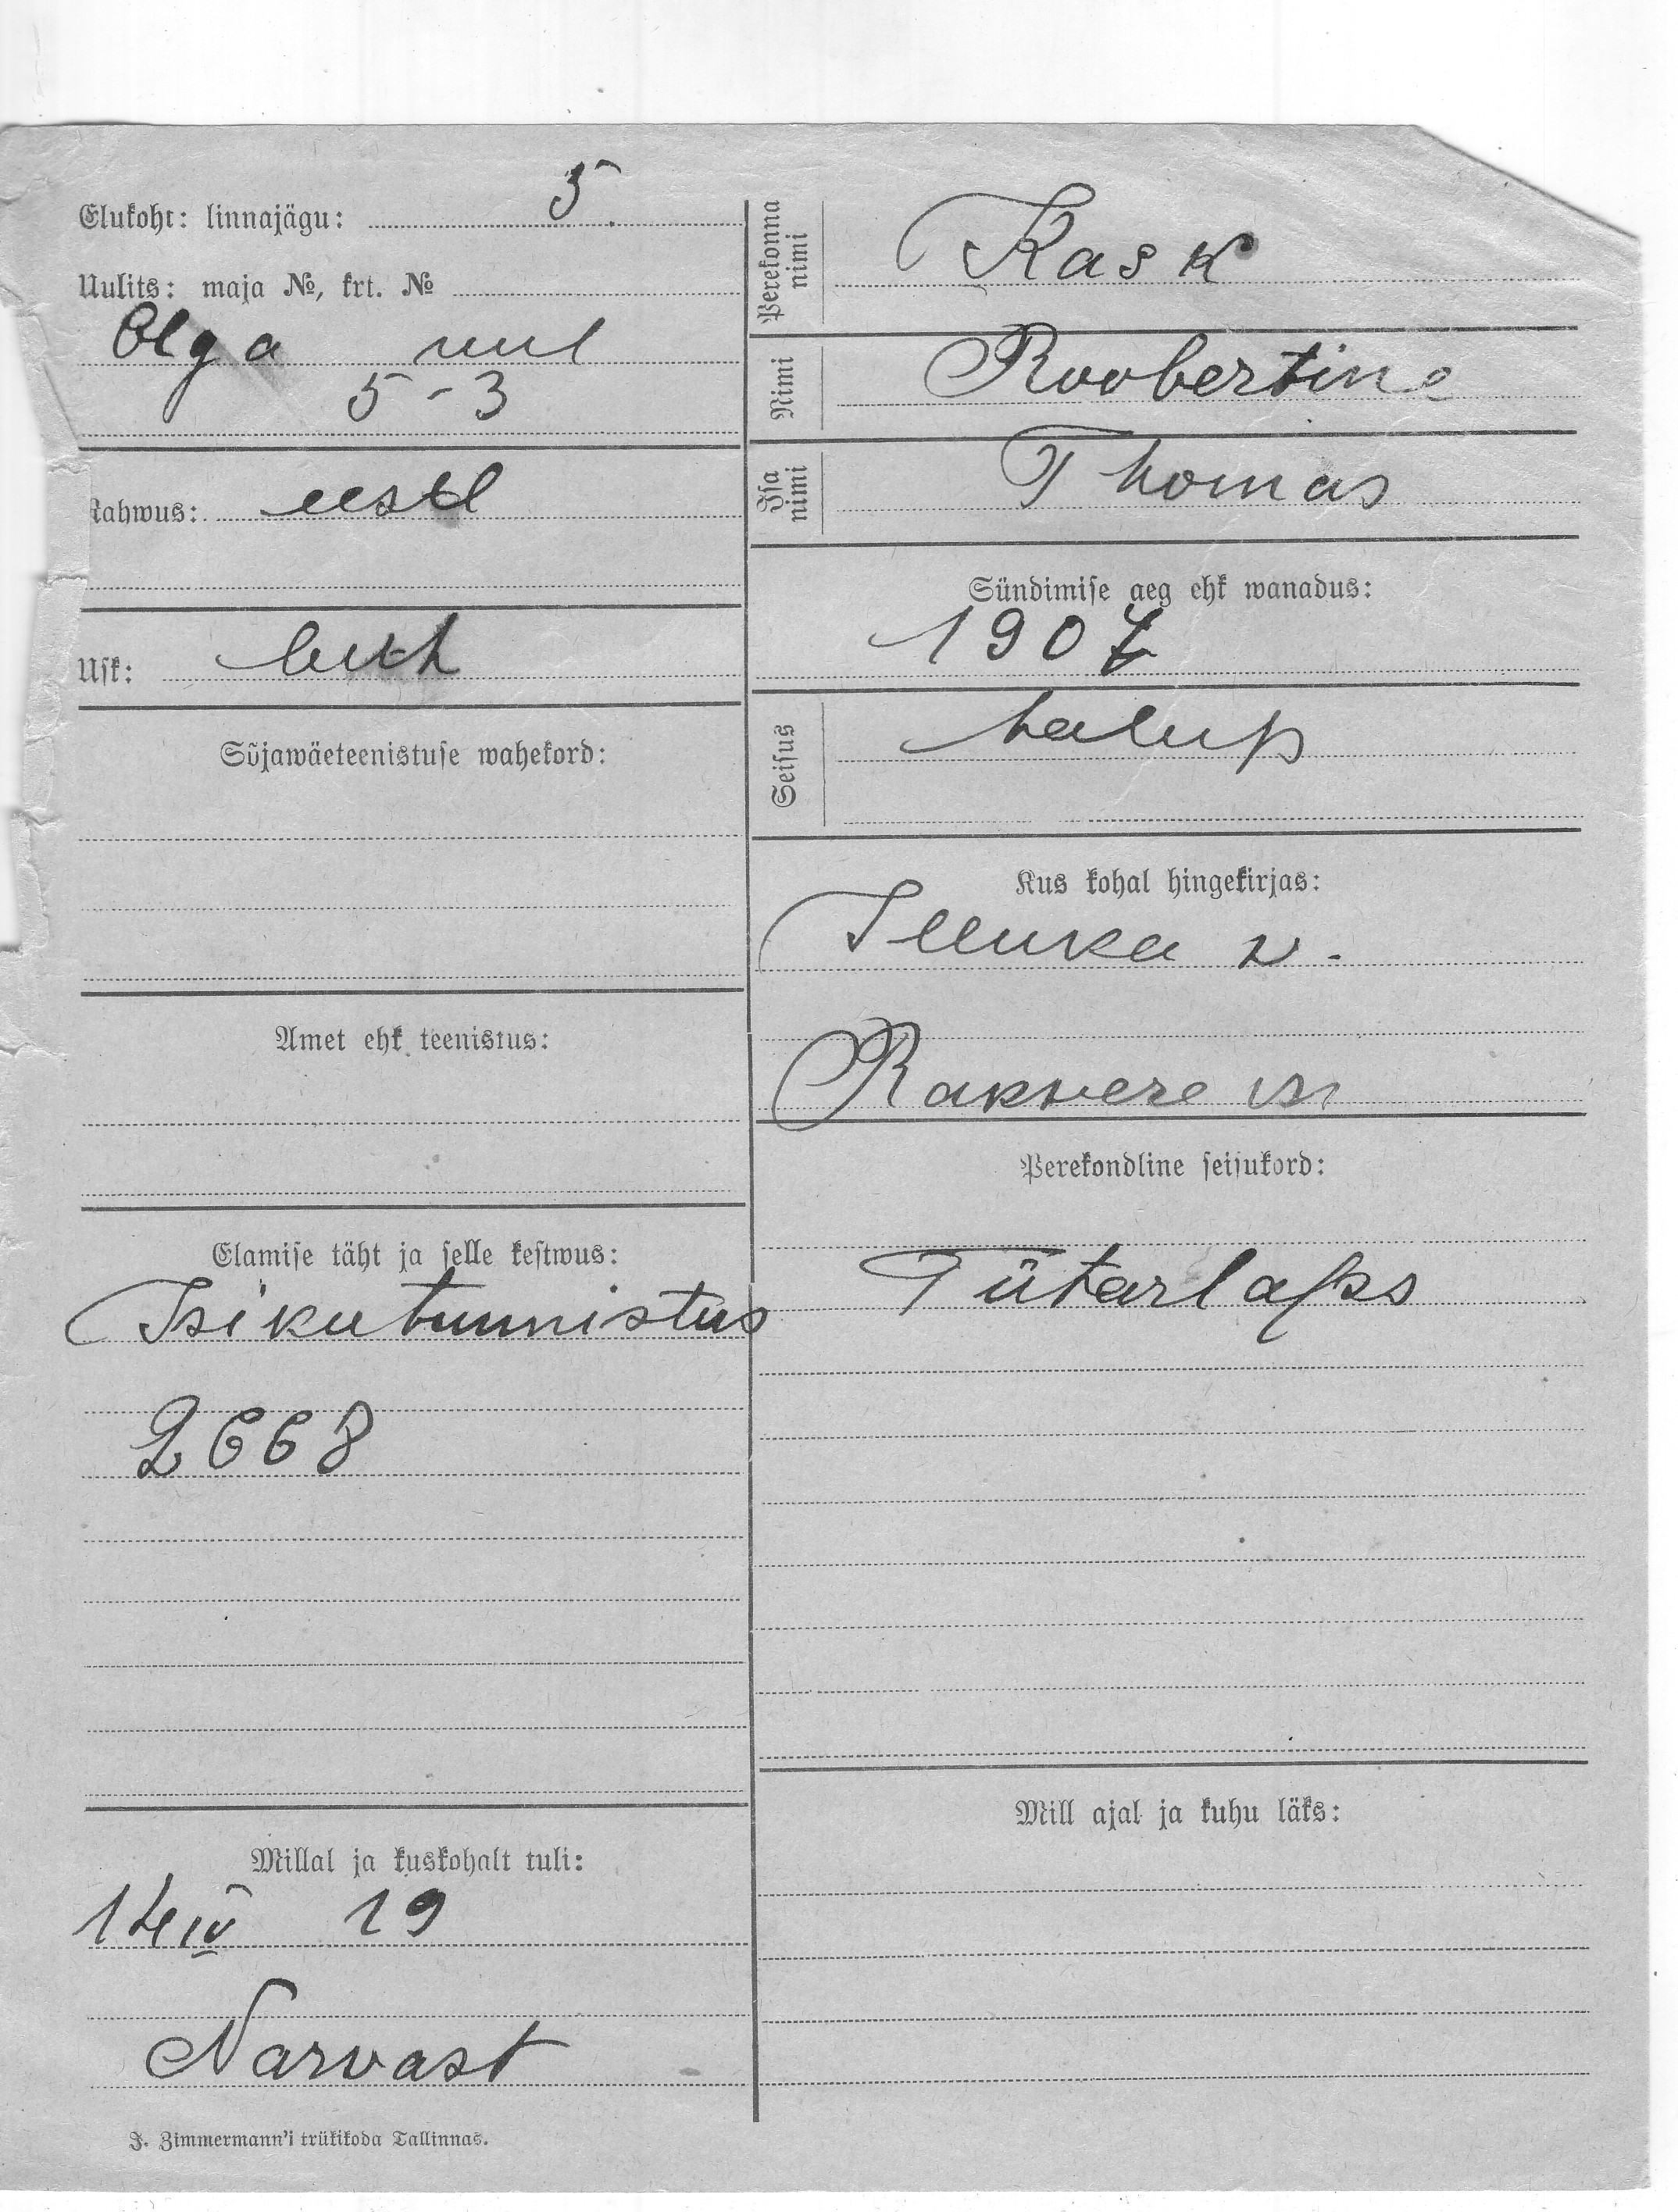 Elukoht: linnajägu: 5.
Uulits: maja №, krt. №
Olga uul
5-3
Rahwus: eestl
Usk: luth
Sõjawäeteenistuse wahekord:
Amet ehk teenistus:
Elamise täht ja selle kestwus:
Isikutunnistus
2668
Millal ja kuskohalt tuli:
14 IV 19
Narvast
J. Zimmermann'i trükikoda Tallinnas.
Perekonna nimi Kask
Nimi Roobertine
Isa nimi Thomas
Sündimise aeg ehk wanadus:
1907
Seisus talup
Kus kohal hingekirjas:
Illuka v.
Rakvere m
Perekondline seisukord:
Tütarlaſss
Mill ajal ja kuhu läks: